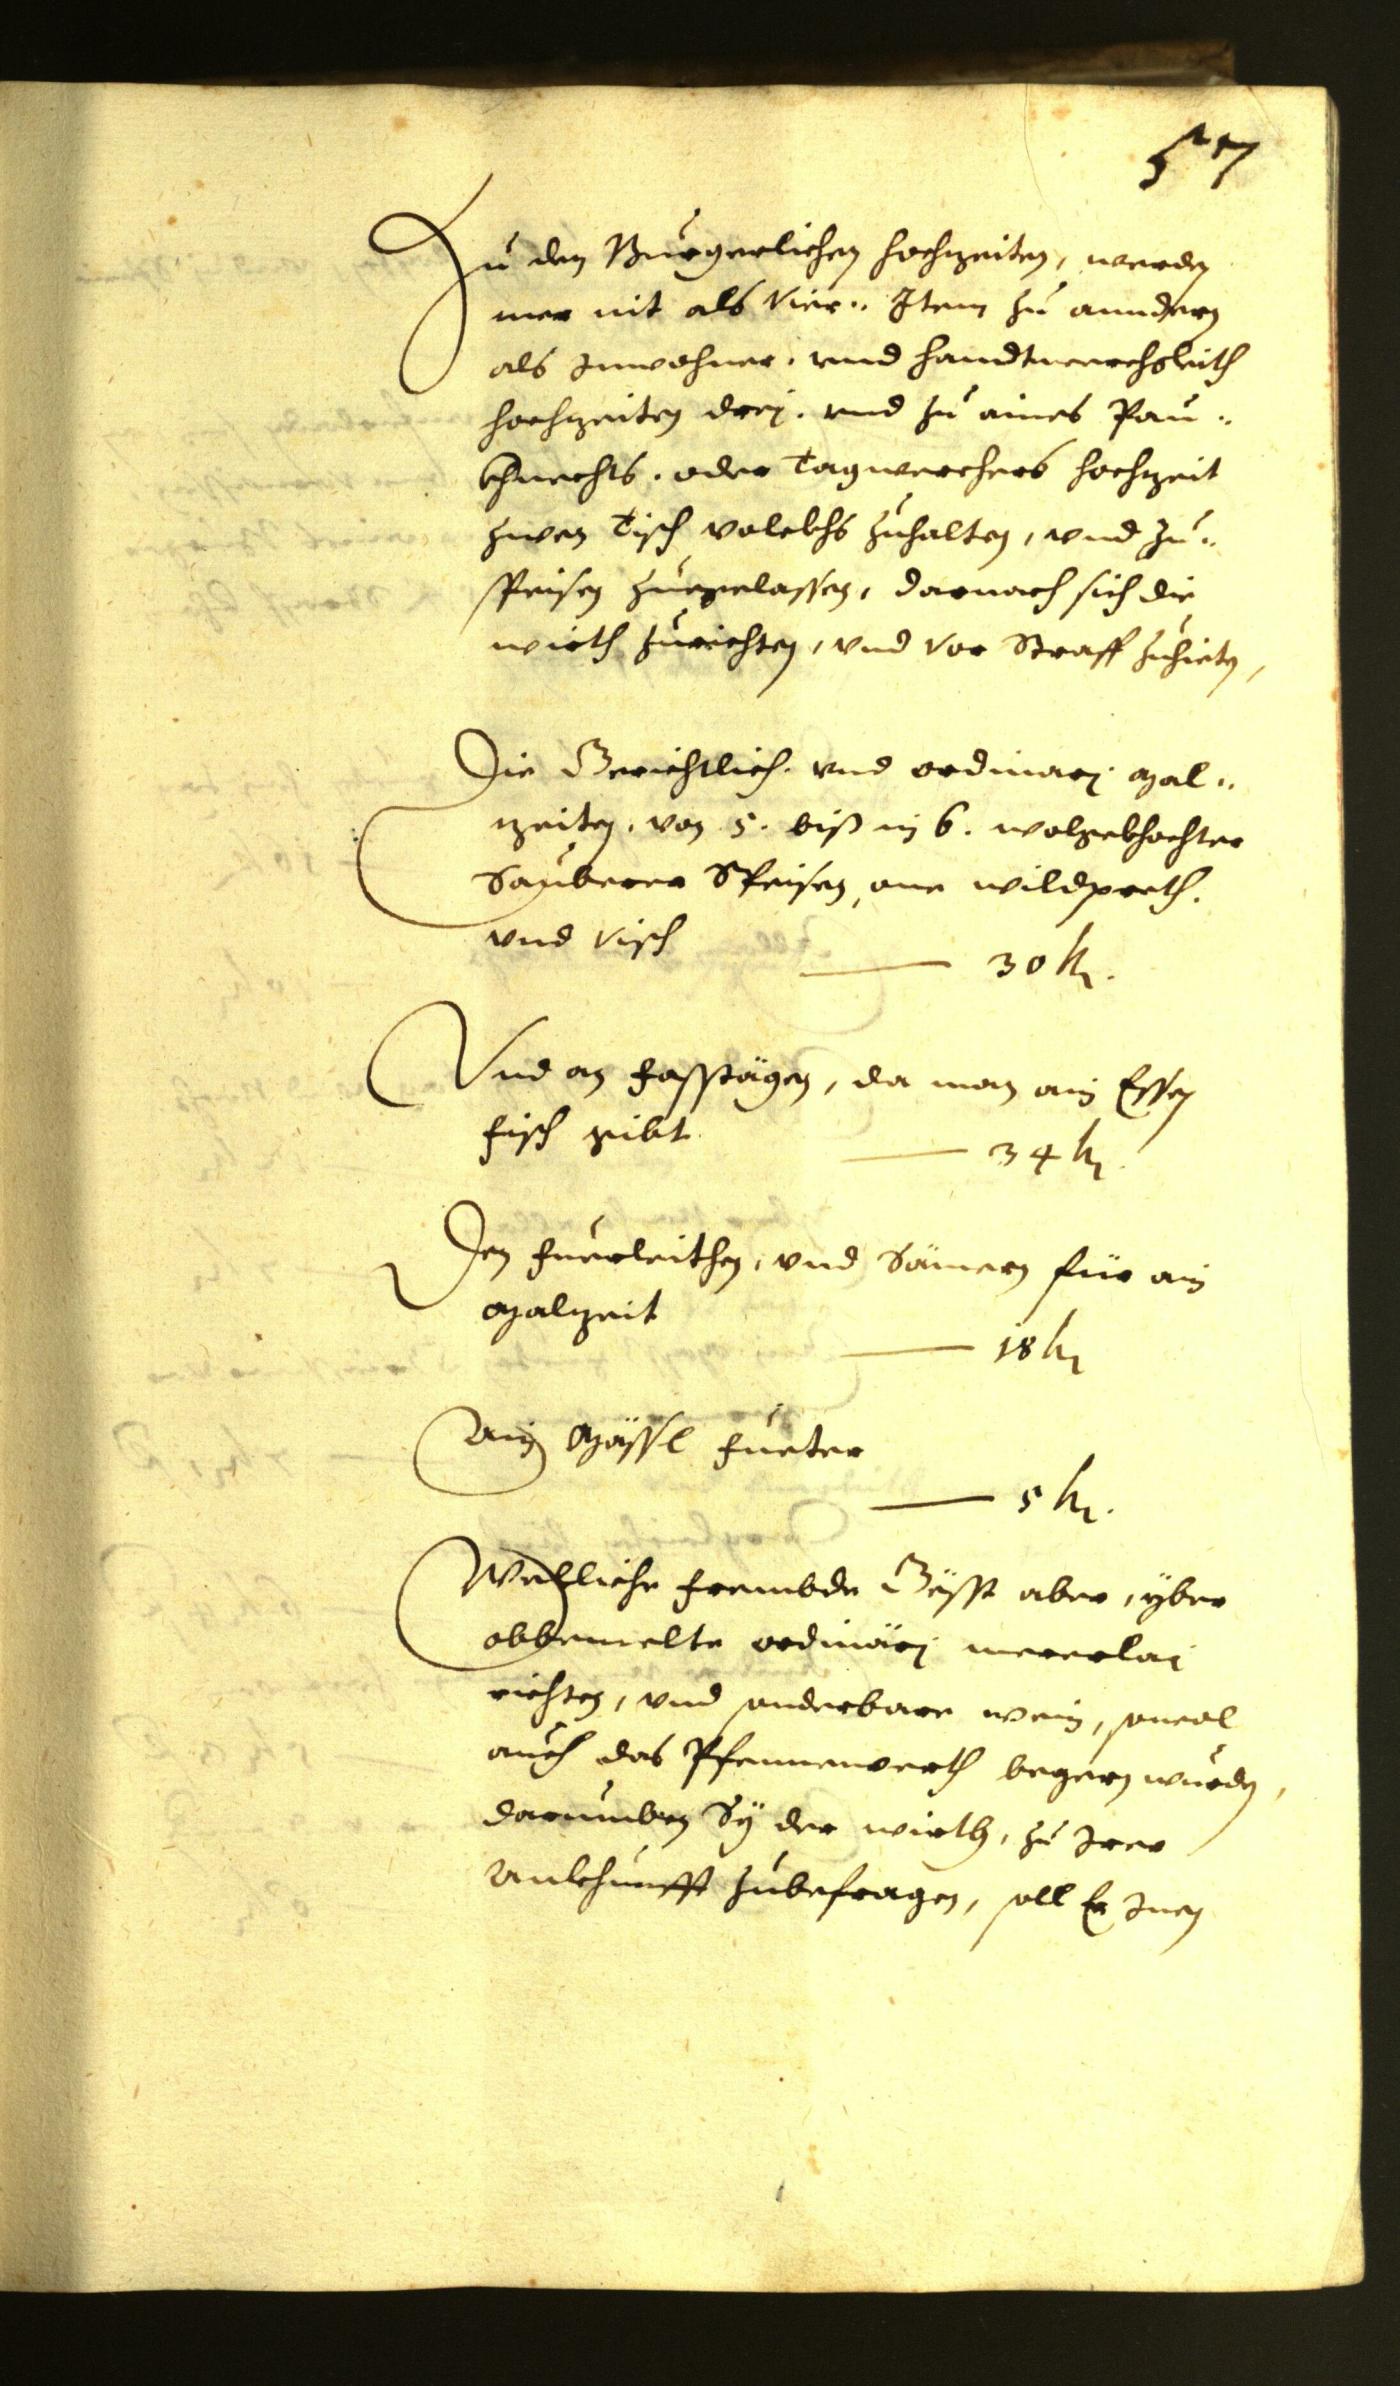 57
Zu den Burgerlichen hochzeiten, werden
mer nit als vier.. Item zu anndern
als Inwohner. vnd handtwerchsleith
hochzeiten drej. vnd zu aines Pau..
khnechts. oder Tagwerchers hochzeit
zwen Tisch volckhs zuhalten, vnd zu..
speisen zuegelassen, darnach sich die
wirth zurichten, vnd vor Straff zuhieten,
Die Gerichtlich. vnd ordinarj mal..
zeiten, von 5. biß in 6. wolgekhochter
Sauberer Speisen, one wildpreth.
vnd visch
30 kr.
Vnd an fasstägen, da man ain Essen
fisch gibt
34 kr.
Den fuerleithen, vnd Sämern für ain
malzeit
18 kr
Ain Mässl fueter
5 kr.
Welliche frembde Gësst aber, yber
obbemelte ordinärj mererlaj
richten, vnd sonderbare wein, souol
auch das Pfenwerth begern wurden,
darumben Sÿ der wirth, zu Irer
Ankhunfft zubefragen, soll Er Inen